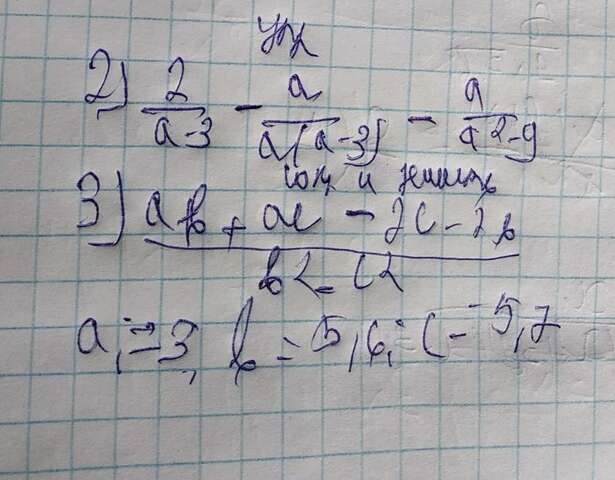 упр
2) 2/(a-3) - a/(a(a-3)) - a/(a²-9)
сокр и решить
3) (ab + ac - 2c - 2b)/(b2 - c2)
a = 3, b = 5,6; c - 5,7